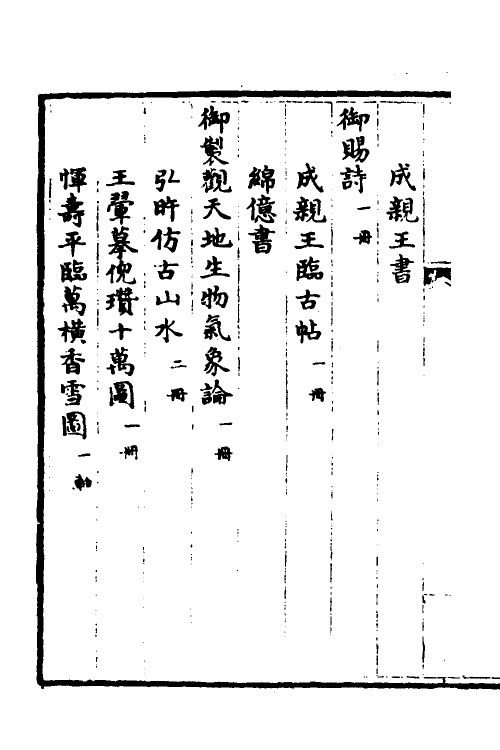 成親王書
御賜詩一冊
成親王臨古帖一冊
綿億書
御製觀天地生物氣象論一冊
弘旿仿古山水二冊
王翬摹倪瓚十萬圖一冊
惲壽平臨萬橫香雪圖一軸